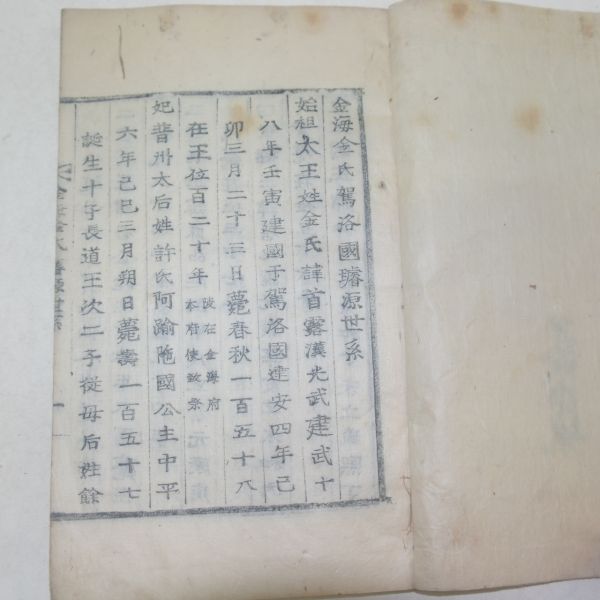 金海金氏駕洛國璿源世系
始祖太王姓金氏諱首露漢光武建武十
八年壬寅建國于駕洛國建安四年己
卯三月二十三日薨春秋一百五十八
在王位百二十年 陵在金海府
本府使致祭
妃普州太后姓許氏阿踰陁國公主中平
六年己巳三月朔日薨壽一百五十七
誕生十子長道王次二子從母后姓餘
金海金氏璿源世系 一